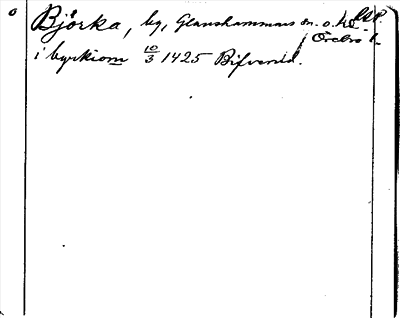 Björka, by, Glanshammars sn. o. hd
Örebro l.
i byrkiom 10/3 1425 Bifvered.